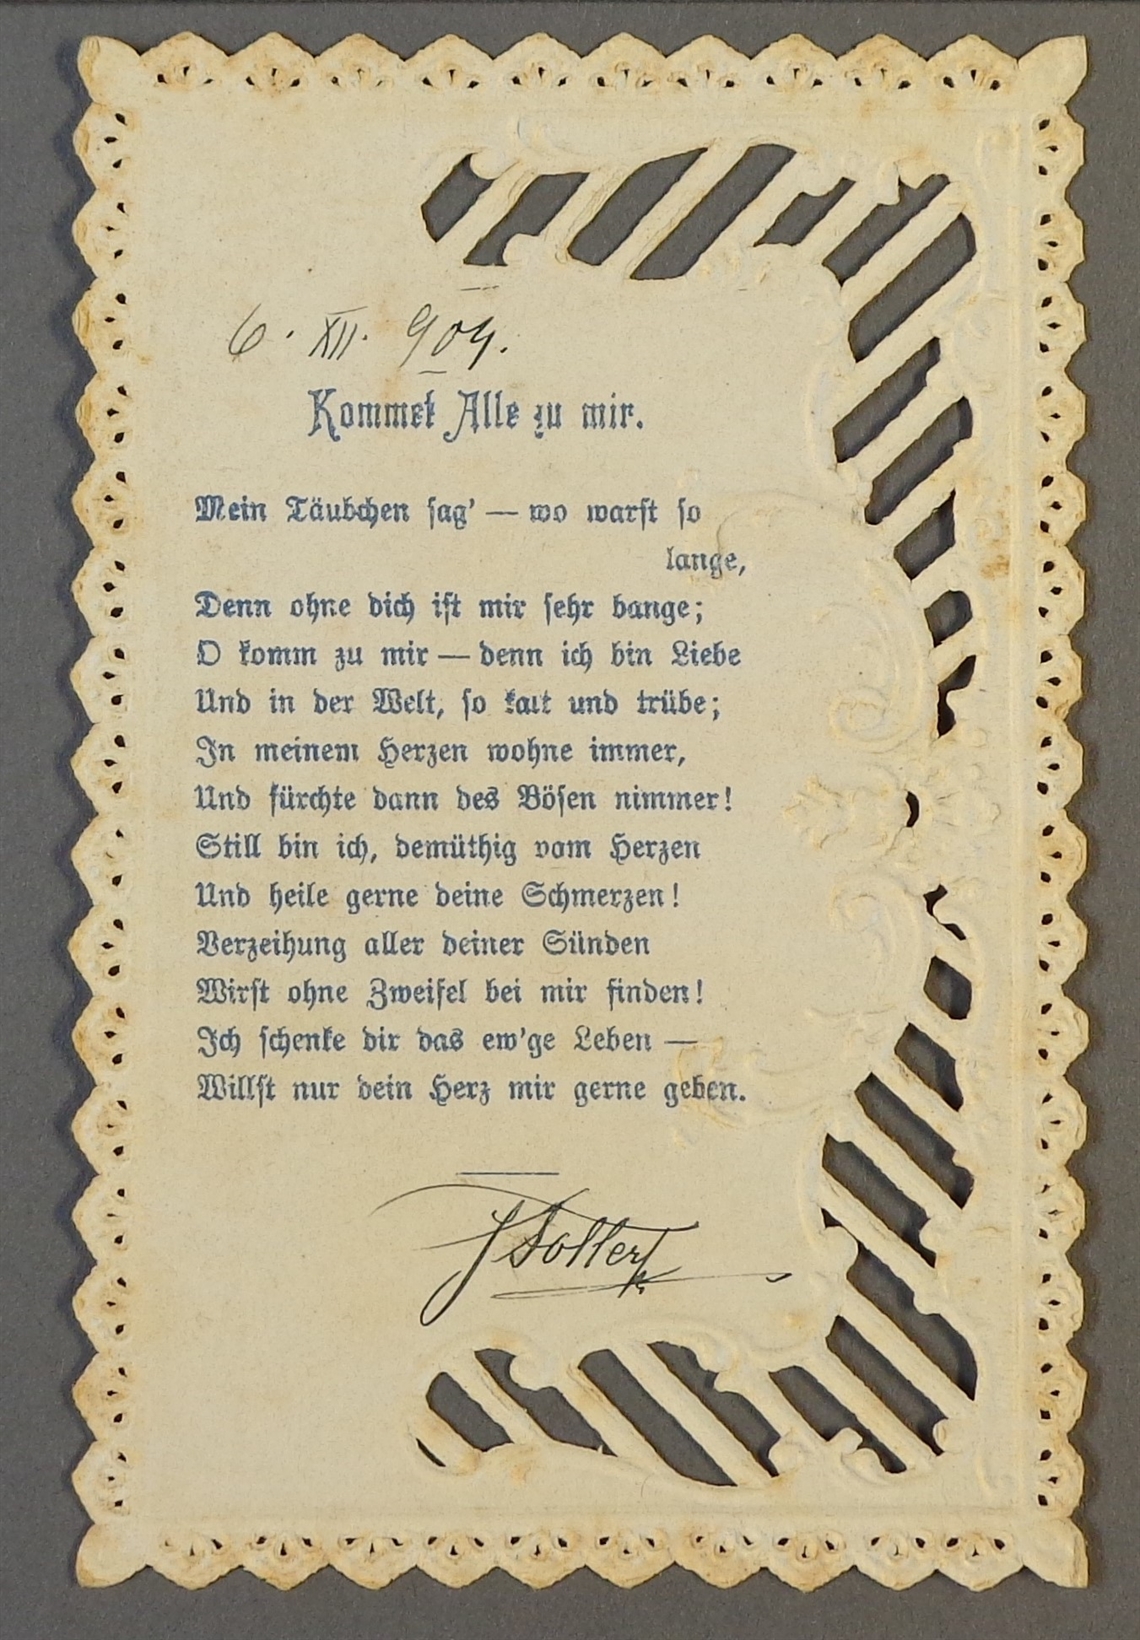 6. XII. 904.
Kommet Alle zu mir.
Mein Täubchen sag' — wo warst so
lange,
Denn ohne dich ist mir sehr bange;
O komm zu mir — denn ich bin Liebe
Und in der Welt, so kalt und trübe;
In meinem Herzen wohne immer,
Und fürchte dann des Bösen nimmer!
Still bin ich, demüthig vom Herzen
Und heile gerne deine Schmerzen!
Verzeihung aller deiner Sünden
Wirst ohne Zweifel bei mir finden!
Ich schenke dir das ew'ge Leben —
Willst nur dein Herz mir gerne geben.